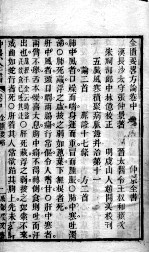 金匱要略方論卷中 仲景全書
漢長沙太守張仲景述 晉太醫令王叔和集
林億校正 明虞山人趙開美校刊
五臟風寒積聚病脉證并治第十一
論二首 脉證十七條 方二首
肺中風者口燥而喘身運而重冒而腫脹○肺中寒吐濁
涕○肺死藏浮之虛按之弱如葱葉下無根者死○
肝中風者頭目瞤兩脇痛行常傴令人嗜甘○肝中寒者
兩臂不舉舌本燥喜太息胸中痛不得轉側食則吐而
汗出也○肝死藏浮之弱按之如索不來
或曲如蛇行者死○肝着其人常欲蹈其胸上